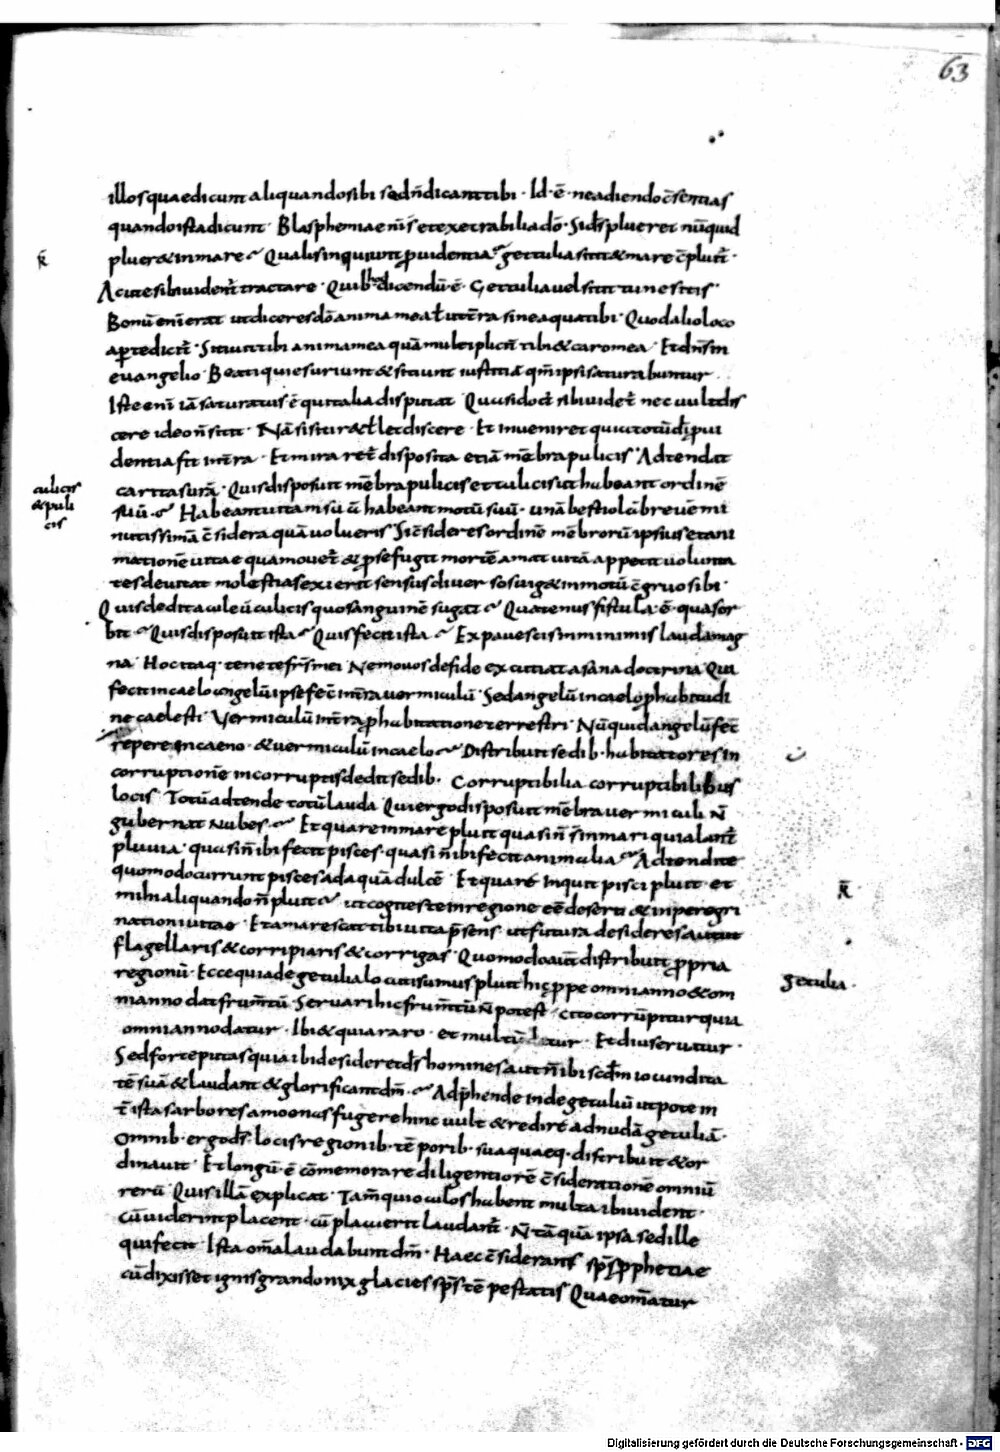 63
illos quae dicunt aliquando sibi sed n̄ dicant tibi · Id · ē · ne adiendo c̄sentias
quando ista dicunt · Blasphemiae enī s̄ et exetrabilia dō · Si ds̄ plueret nūquid
R̄
pluer& in mare · Qualis inquiunt puidentia · getulia sitit & mare c̄pluit̄ ·
Acute sibi uident̄ tractare · Quib; hoc dicendū · ē · Getulia uel sitit tu ne sitis
Bonū enī erat ut diceres dō anima mea ut t̄ra sine aqua tibi · Quod alio loco
aperte dicit̄ · Sitiuit tibi anima mea quā multiplicit̄ tibi & caro mea · Et dn̄s in
euangelio · Beati qui esuriunt & sitiunt iustitiā qm̄ ipsi saturabuntur
Iste enī iā saturatus ē qui talia disputat · Quasi doct̄ sibi uidet̄ nec uult dis
cere ideo n̄ sitit · Nā si sitir& uellet discere · Et inueniret quia totū dī pui
dentia fit in t̄ra · Et miraret̄ disposita etiā mēbra pulicis · Adtendat
culicis
& puli
cis
caritas urā · Quis disposuit mēbra pulicis et culicis ut habeant ordinē
suū · Habeant uitam suā habeant motū suū · unā bestiolā breuē mi
nutissimā c̄sidera quā uolueris · Si c̄sideres ordinē mēbrorū ipsius et ani
mationē uitae qua mouet̄ & p se fugit mortē amat uitā appetit volupta
tes deuitat molestias exierit sensus diuersos uig& in motū c̄gruo sibi ·
Quis dedit aculeū culicis quo sanguinē sugat · Qua tenus fistula · ē · qua sor
bit · Quis disposuit ista · Quis fecit ista · Expauescis in minimis lauda mag
na · Hoc itaq· tenete frs̄ mei · Nemo uos de fide excutiat a sana doctrina · Qui
fecit in caelo angelū ipse fec̄ in t̄ra uermiculū · Sed angelū in caelo p habitudi
ne caelesti · Vermiculū in t̄ra p habitatione terrestri · Nūquid angelū fec̄
repere in caeno · & uermiculū in caelo · Distribuit sedib· habitatores in
corruptionē incorruptis dedit sedib· Corruptibilia corruptibilibus
locis · Totū adtende totū lauda · Qui ergo disposuit mēbra uermiculi n̄
gubernat nubes · Et quare in mare pluit quasi n̄ s̄ in mari quia alant̄
pluuia · quasi n̄ ibi fecit pisces · quasi n̄ ibi fecit animalia · Adtendite
quomodo currunt pisces ad aquā dulcē · Et quare inquit pisci pluit · et
R̄
mihi aliquando n̄ pluit · ut cogites te in regione eē deserti & in peregri
nationi uitae · Et amarescat tibi uita p̄sens · ut futura desideres aut ut
flagellaris & corripiaris & corrigas · Quomodo aut̄ distribuit ppria
getulia ·
regionū · Ecce quia de getulia locuti sumus pluit hic ppe omni anno & om
ni anno dat frum̄tū · Servari hic frum̄tū n̄ potest · cito corrūpitur quia
omni anno datur · Ibi & quia raro · et multū datur · Et diu servatur ·
Sed forte putas quia ibi desideret ds̄ homines aut n̄ ibi scdm̄ iocundita
tē suā & laudant & glorificant dm̄ · Adp̄hende inde getuliū ut pote in
t̄ istas arbores amoenas fugere hinc uult & redire ad nudā getuliā ·
Omnib· ergo ds̄ · locis regionib· tēporib· sua quaeq· distribuit & or
dinauit · Et longū · ē c̄memorare diligentiorē c̄siderationē omniū
rerū · Quis illā explicat · Tam̄ qui oculos habent multa ibi uident ·
cū uiderint placent · cū placuerit laudant̄ · N̄ tā quā ipsa sed ille
qui fecit · Ista om̄a laudabunt dm̄ · Haec c̄siderans sps̄ pphetiae
cū dixisset ignis grando nix glacies sps̄ tēpestatis · Quae om̄a tur
Digitalisierung gefördert durch die Deutsche Forschungsgemeinschaft · DFG